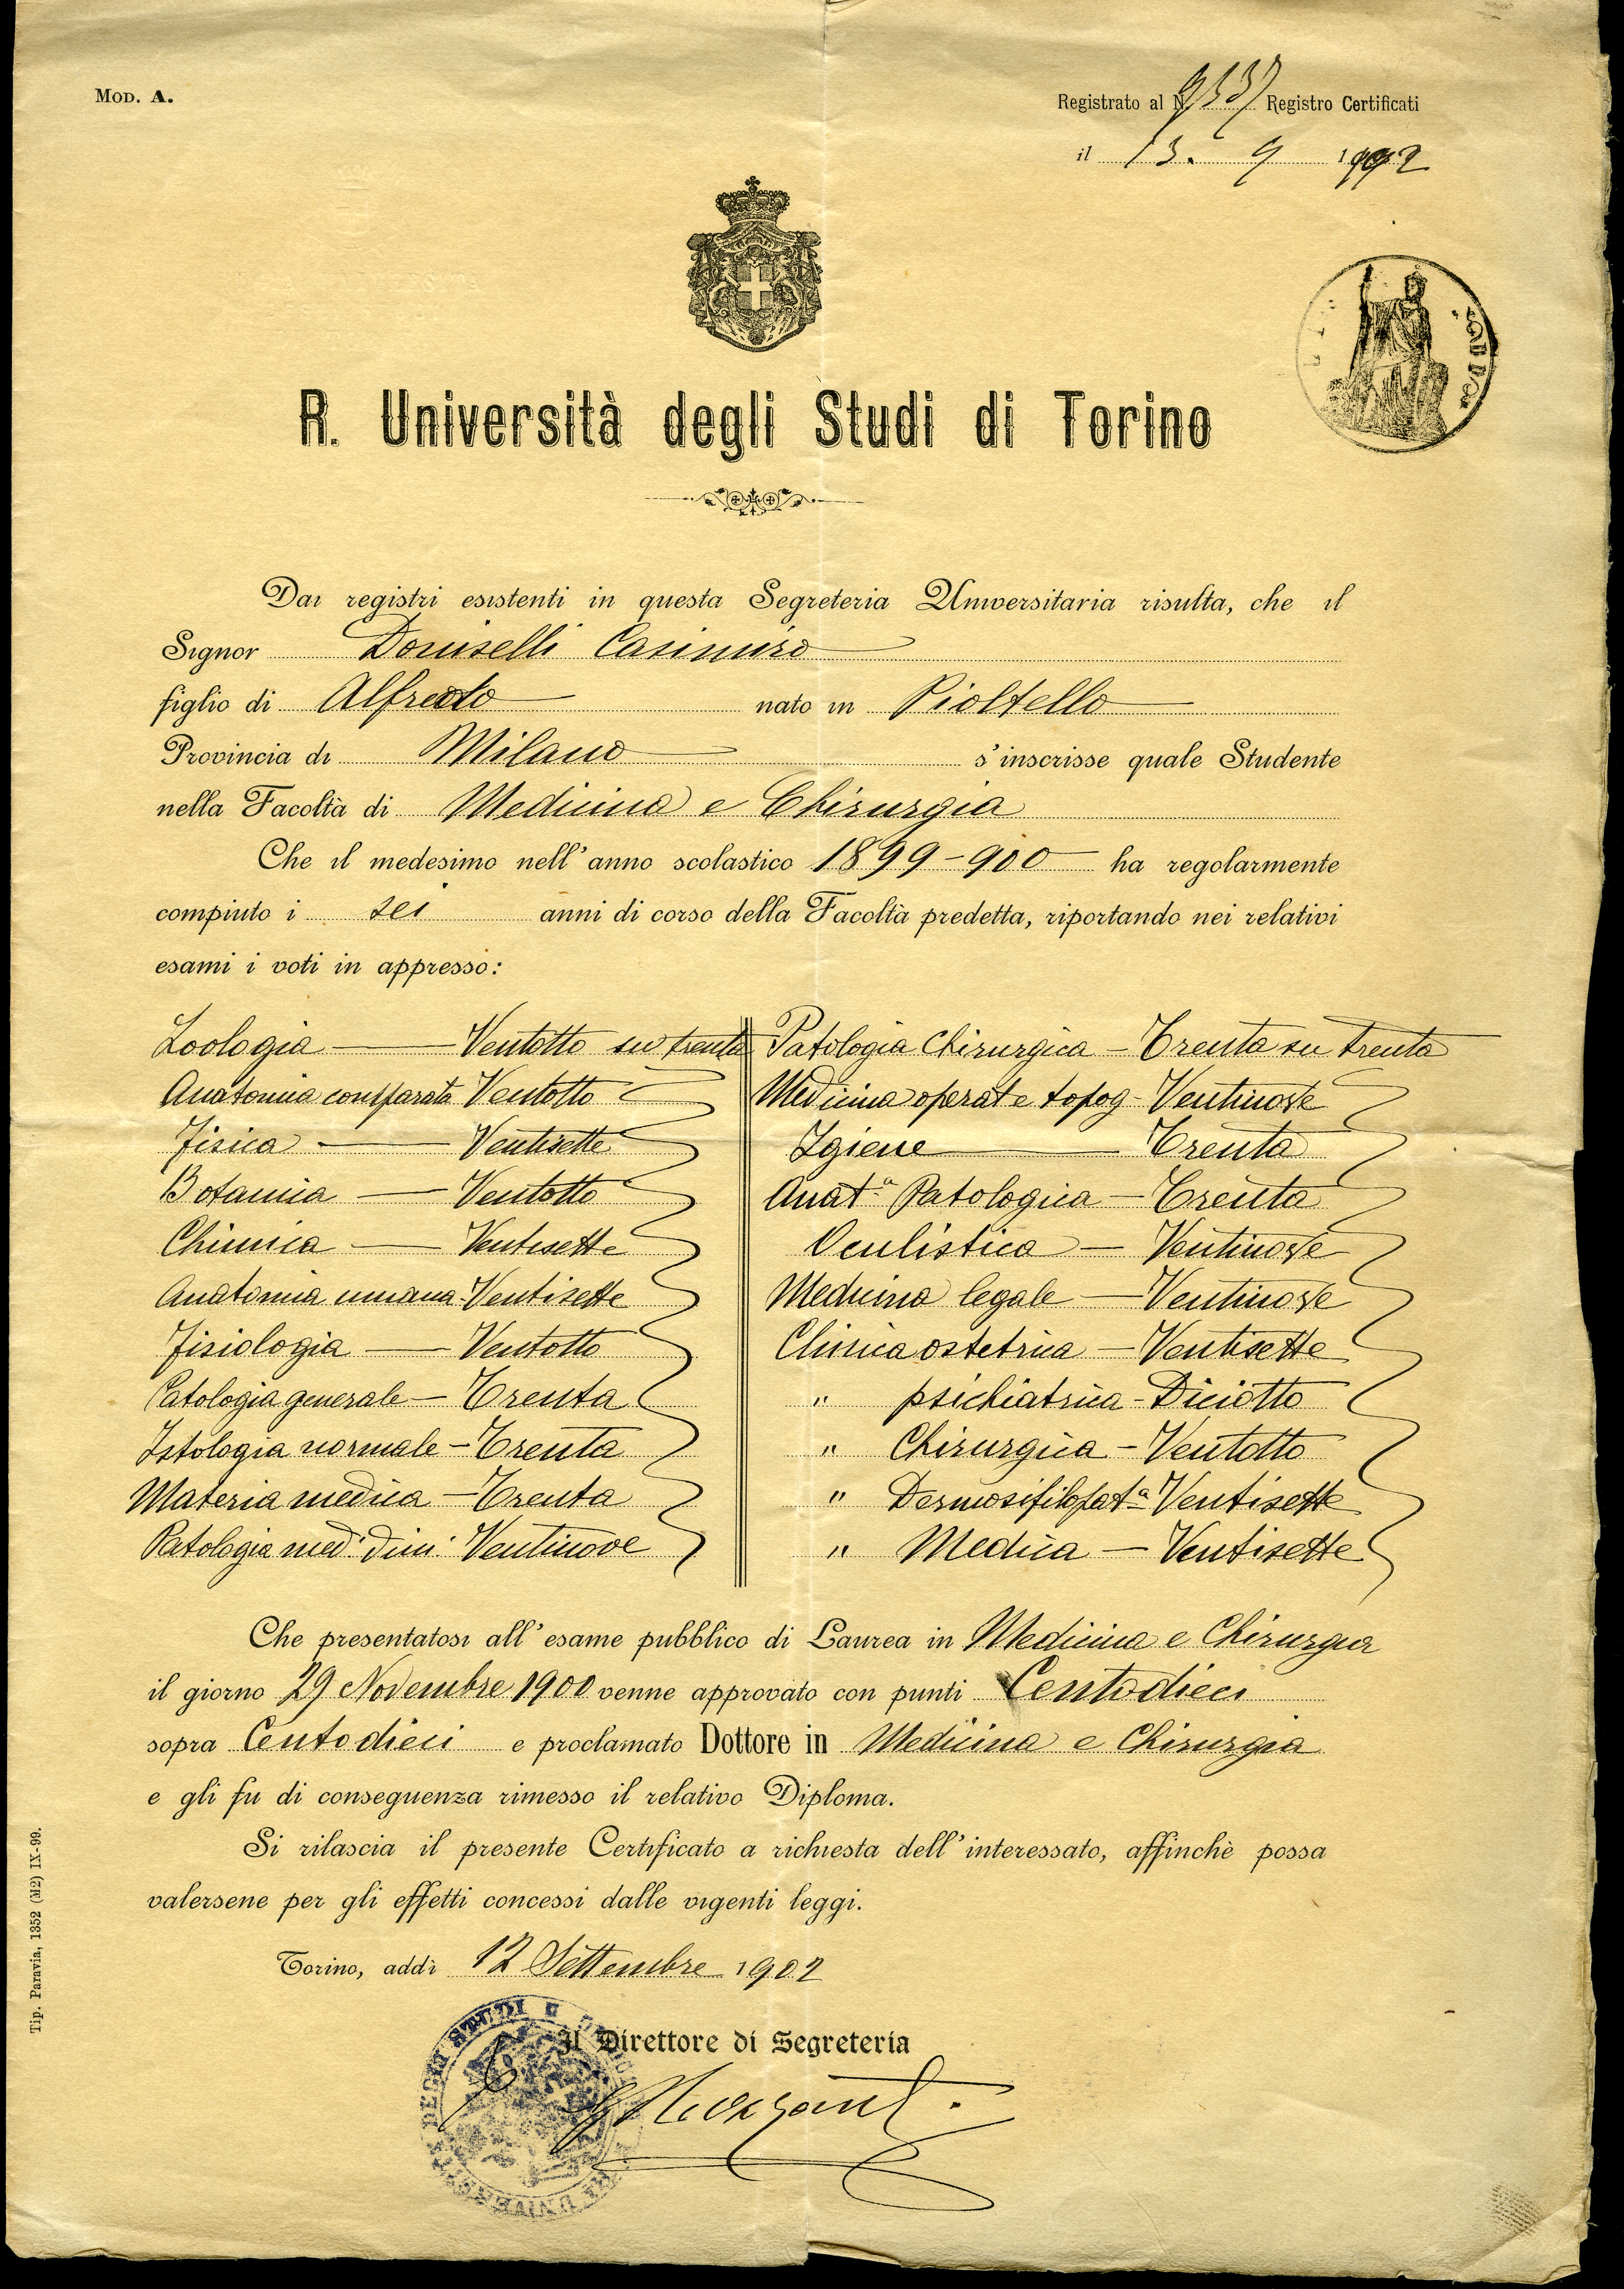 MOD. A.
Registrato al N. 9137 Registro Certificati
il 13. 9 1902
R. Università degli Studi di Torino
Dai registri esistenti in questa Segreteria Universitaria risulta, che il
Signor Doniselli Casimiro
figlio di Alfredo nato in Pioltello
Provincia di Milano s'inscrisse quale Studente
nella Facoltà di Medicina e Chirurgia
Che il medesimo nell'anno scolastico 1899-900 ha regolarmente
compiuto i sei anni di corso della Facoltà predetta, riportando nei relativi
esami i voti in appresso:
Zoologia — Ventotto su trenta
Anatomia comparata Ventotto
Fisica — Ventisette
Botanica — Ventotto
Chimica — Ventisette
Anatomia umana - Ventisette
Fisiologia — Ventotto
Patologia generale — Trenta
Istologia normale — Trenta
Materia medica — Trenta
Patologia med. dim. Ventinove
Patologia Chirurgica — Trenta su trenta
Medicina operat e topog - Ventinove
Igiene — Trenta
Anat.a Patologica — Trenta
Oculistica — Ventinove
Medicina legale — Ventinove
Clinica ostetrica — Ventisette
" psichiatrica - Diciotto
" Chirurgica - Ventotto
" Dermosifilopat.a Ventisette
" Medica — Ventisette
Che presentatosi all'esame pubblico di Laurea in Medicina e Chirurgia
il giorno 29 Novembre 1900 venne approvato con punti Centodieci
sopra Centodieci e proclamato Dottore in Medicina e Chirurgia
e gli fu di conseguenza rimesso il relativo Diploma.
Si rilascia il presente Certificato a richiesta dell'interessato, affinchè possa
valersene per gli effetti concessi dalle vigenti leggi.
Torino, addì 12 Settembre 1902
Il Direttore di Segreteria
Tip. Paravia, 1352 (M2) IX-99.